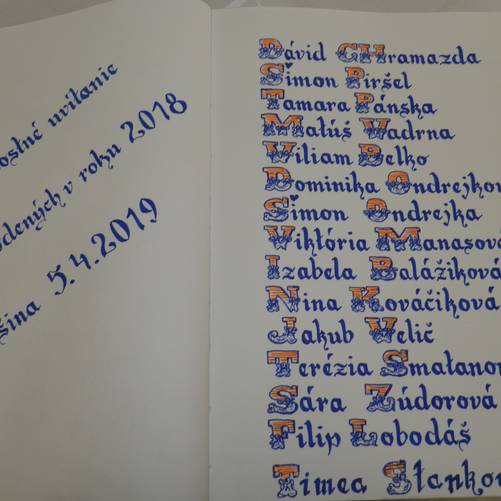 ostné uvítanie
odených v roku 2018
šina 5.4.2019
Dávid CHramazda
Šimon Piršel
Tamara Pánska
Matúš Vadrna
Viliam Belko
Dominika Ondrejkov
Šimon Ondrejka
Viktória Manasová
Izabela Balážiková
Nina Kováčiková
Jakub Velič
Terézia Smatanov
Sára Zúdorová
Filip Lobodáš
Timea Stankov